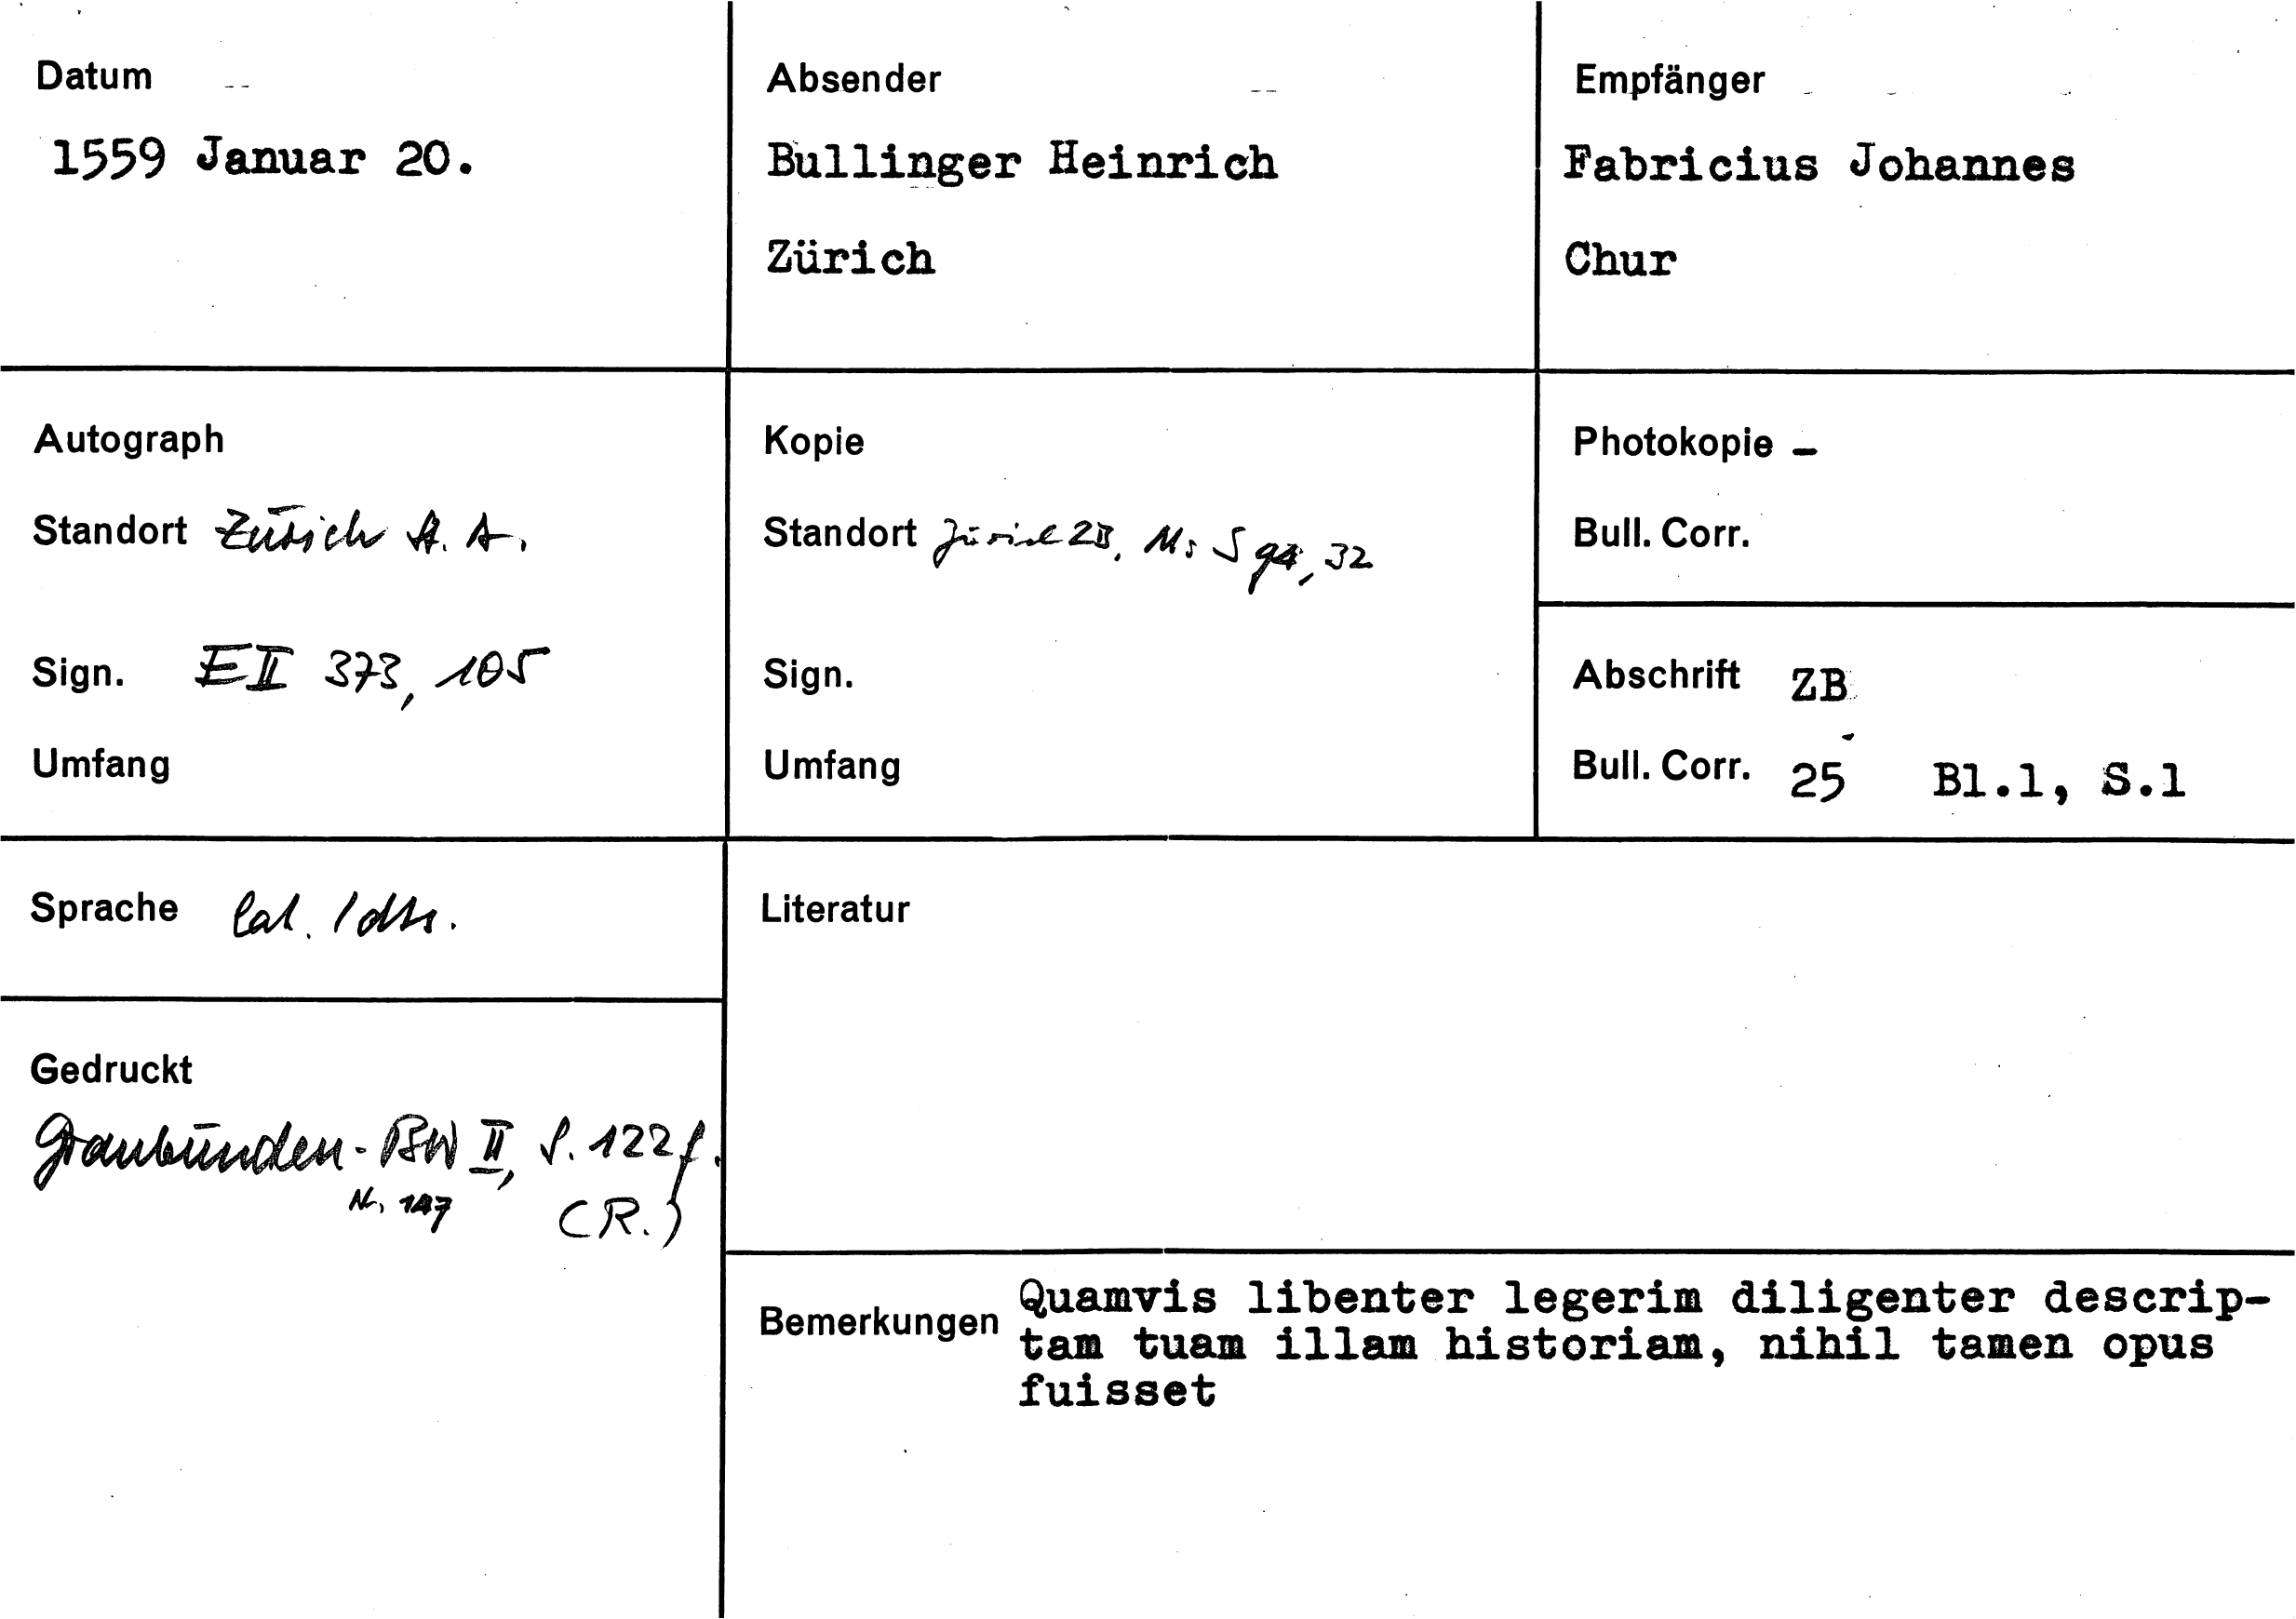 Datum
1559 Januar 20.
Absender
Bullinger Heinrich
Zürich
Empfänger
Fabricius Johannes
Chur
Autograph
Standort Zürich St. A.
Sign. E II 373, 105
Umfang
Kopie
Standort Zürich ZB, Ms S 94, 32
Sign.
Umfang
Photokopie -
Bull. Corr.
Abschrift ZB
Bull. Corr. 25 Bl.1, S.1
Sprache lat. / dts.
Gedruckt
Graubünden-BW II, S. 122f.
Nr. 147 (R.)
Literatur
Bemerkungen Quamvis libenter legerim diligenter descrip-
tam tuam illam historiam, nihil tamen opus
fuisset